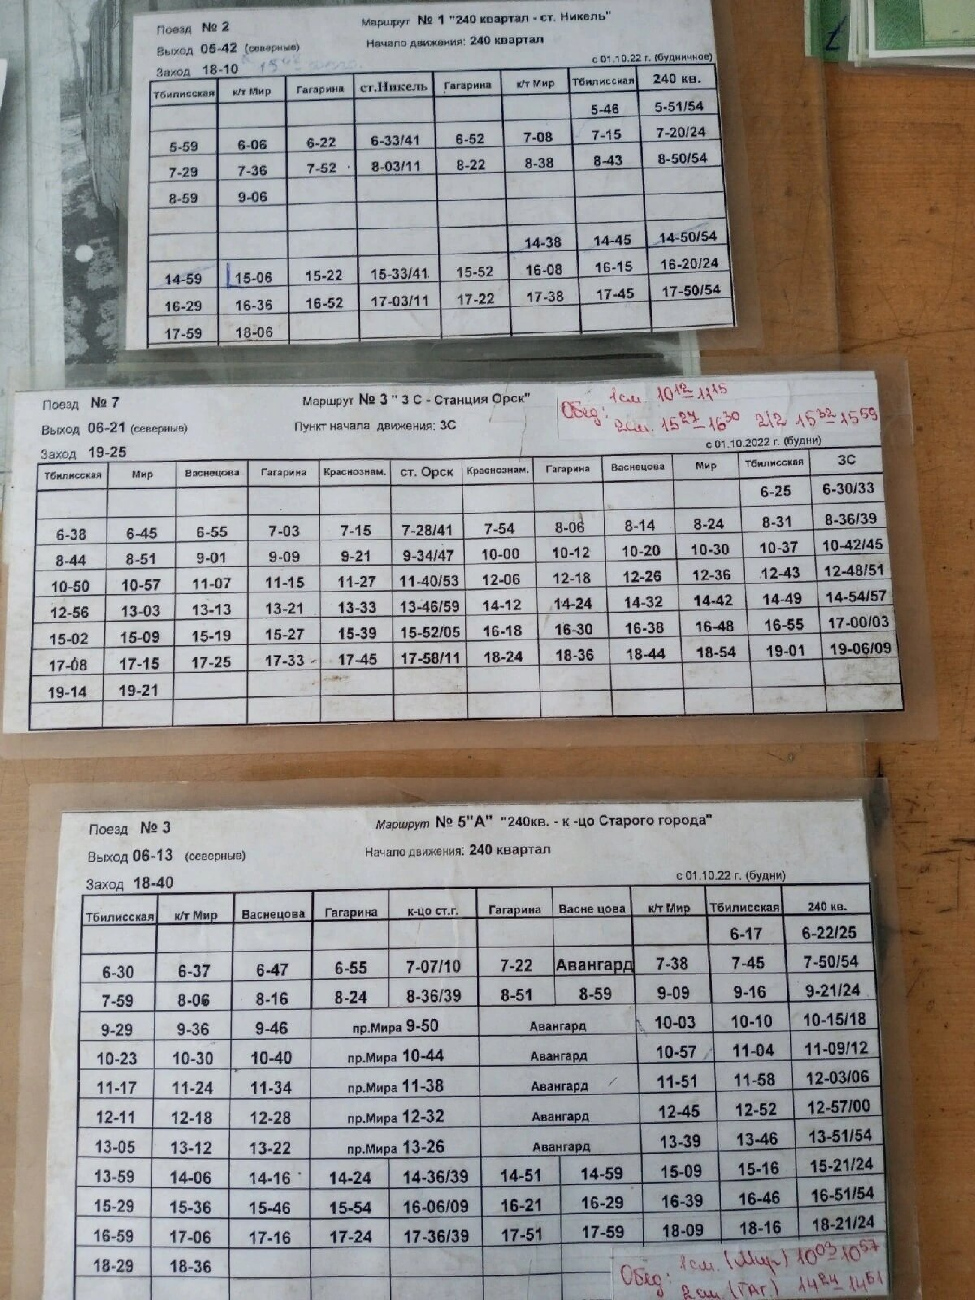 Поезд № 2 Маршрут № 1 "240 квартал - ст. Никель"
Выход 05-42 (северные) Начало движения: 240 квартал
Заход 18-10 с 01.10.22 г. (будничное)
Тбилисская к/т Мир Гагарина ст.Никель Гагарина к/т Мир Тбилисская 240 кв.
5-46 5-51/54
5-59 6-06 6-22 6-33/41 6-52 7-08 7-15 7-20/24
7-29 7-36 7-52 8-03/11 8-22 8-38 8-43 8-50/54
8-59 9-06
14-38 14-45 14-50/54
14-59 15-06 15-22 15-33/41 15-52 16-08 16-15 16-20/24
16-29 16-36 16-52 17-03/11 17-22 17-38 17-45 17-50/54
17-59 18-06
Поезд № 7 Маршрут № 3 " 3 С - Станция Орск"
Обед: 1см. 10 12 - 11 15
2см. 15 27 - 16 30 2/2 15 32 - 15 59
Выход 06-21 (северные) Пункт начала движения: 3С
Заход 19-25 с 01.10.2022 г. (будни)
Тбилисская Мир Васнецова Гагарина Краснознам. ст. Орск Краснознам. Гагарина Васнецова Мир Тбилисская 3С
6-25 6-30/33
6-38 6-45 6-55 7-03 7-15 7-28/41 7-54 8-06 8-14 8-24 8-31 8-36/39
8-44 8-51 9-01 9-09 9-21 9-34/47 10-00 10-12 10-20 10-30 10-37 10-42/45
10-50 10-57 11-07 11-15 11-27 11-40/53 12-06 12-18 12-26 12-36 12-43 12-48/51
12-56 13-03 13-13 13-21 13-33 13-46/59 14-12 14-24 14-32 14-42 14-49 14-54/57
15-02 15-09 15-19 15-27 15-39 15-52/05 16-18 16-30 16-38 16-48 16-55 17-00/03
17-08 17-15 17-25 17-33 17-45 17-58/11 18-24 18-36 18-44 18-54 19-01 19-06/09
19-14 19-21
Поезд № 3 Маршрут № 5"А" "240кв. - к -цо Старого города"
Выход 06-13 (северные) Начало движения: 240 квартал
Заход 18-40 с 01.10.22 г. (будни)
Тбилисская к/т Мир Васнецова Гагарина к-цо ст.г. Гагарина Васне цова к/т Мир Тбилисская 240 кв.
6-17 6-22/25
6-30 6-37 6-47 6-55 7-07/10 7-22 Авангард 7-38 7-45 7-50/54
7-59 8-06 8-16 8-24 8-36/39 8-51 8-59 9-09 9-16 9-21/24
9-29 9-36 9-46 пр.Мира 9-50 Авангард 10-03 10-10 10-15/18
10-23 10-30 10-40 пр.Мира 10-44 Авангард 10-57 11-04 11-09/12
11-17 11-24 11-34 пр.Мира 11-38 Авангард 11-51 11-58 12-03/06
12-11 12-18 12-28 пр.Мира 12-32 Авангард 12-45 12-52 12-57/00
13-05 13-12 13-22 пр.Мира 13-26 Авангард 13-39 13-46 13-51/54
13-59 14-06 14-16 14-24 14-36/39 14-51 14-59 15-09 15-16 15-21/24
15-29 15-36 15-46 15-54 16-06/09 16-21 16-29 16-39 16-46 16-51/54
16-59 17-06 17-16 17-24 17-36/39 17-51 17-59 18-09 18-16 18-21/24
18-29 18-36
Обед: 1см. (Мир) 10 03 - 10 57
2см. (Гаг.) 14 24 - 14 51